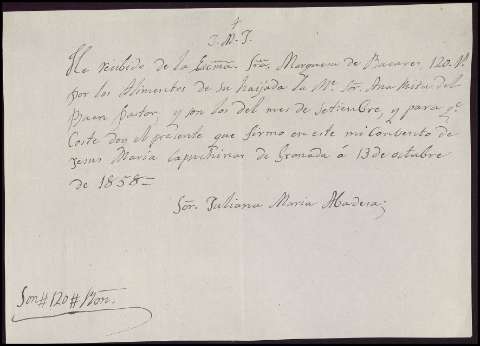 +
J. M. J.
He resibido de la Exma. Sra. Marquesa de Bacares 120 r.
por los Alimentos de su haijada la Me. Sor. Ana del
Buen Pastor, y son los del mes de setienbre, y para qe
Coste doy el presente que firmo en este mi Convento de
Jesus Maria Capuchinas de Granada á 13 de octubre
de 1858=
Sor. Juliana Maria Madera;
Son # 120 # Rbon.